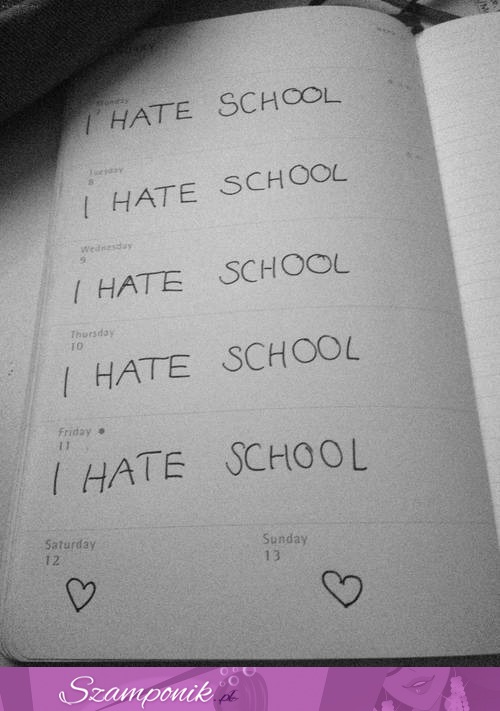 Monday
I HATE SCHOOL
Tuesday
8
I HATE SCHOOL
Wednesday
9
I HATE SCHOOL
Thursday
10
I HATE SCHOOL
Friday
11
I HATE SCHOOL
Saturday
12
Sunday
13
Szamponik.pl